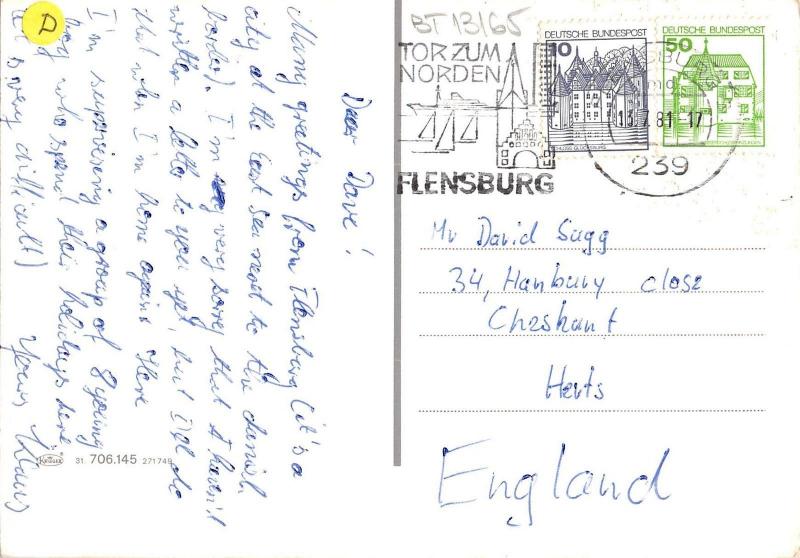 Dear Dave!
Many greetings from Flensburg (it's a
city at the East Sea next to the danish
border). I'm very sorry that I haven't
written a letter to you yet, but I'll do
that when I'm home again. Here
I'm supervising a group of 8 young
who spend their holidays here.
(It's very difficult)
Yours Klaus
D
BT 13/65
TOR ZUM
NORDEN
FLENSBURG
10
DEUTSCHE BUNDESPOST
SCHLOSS GLÜCKSBURG
50
DEUTSCHE BUNDESPOST
13.7.81-17
239
Mr David Sugg
34, Hanbury close
Cheshunt
Herts
England
KRÜGER
31 706.145 271748